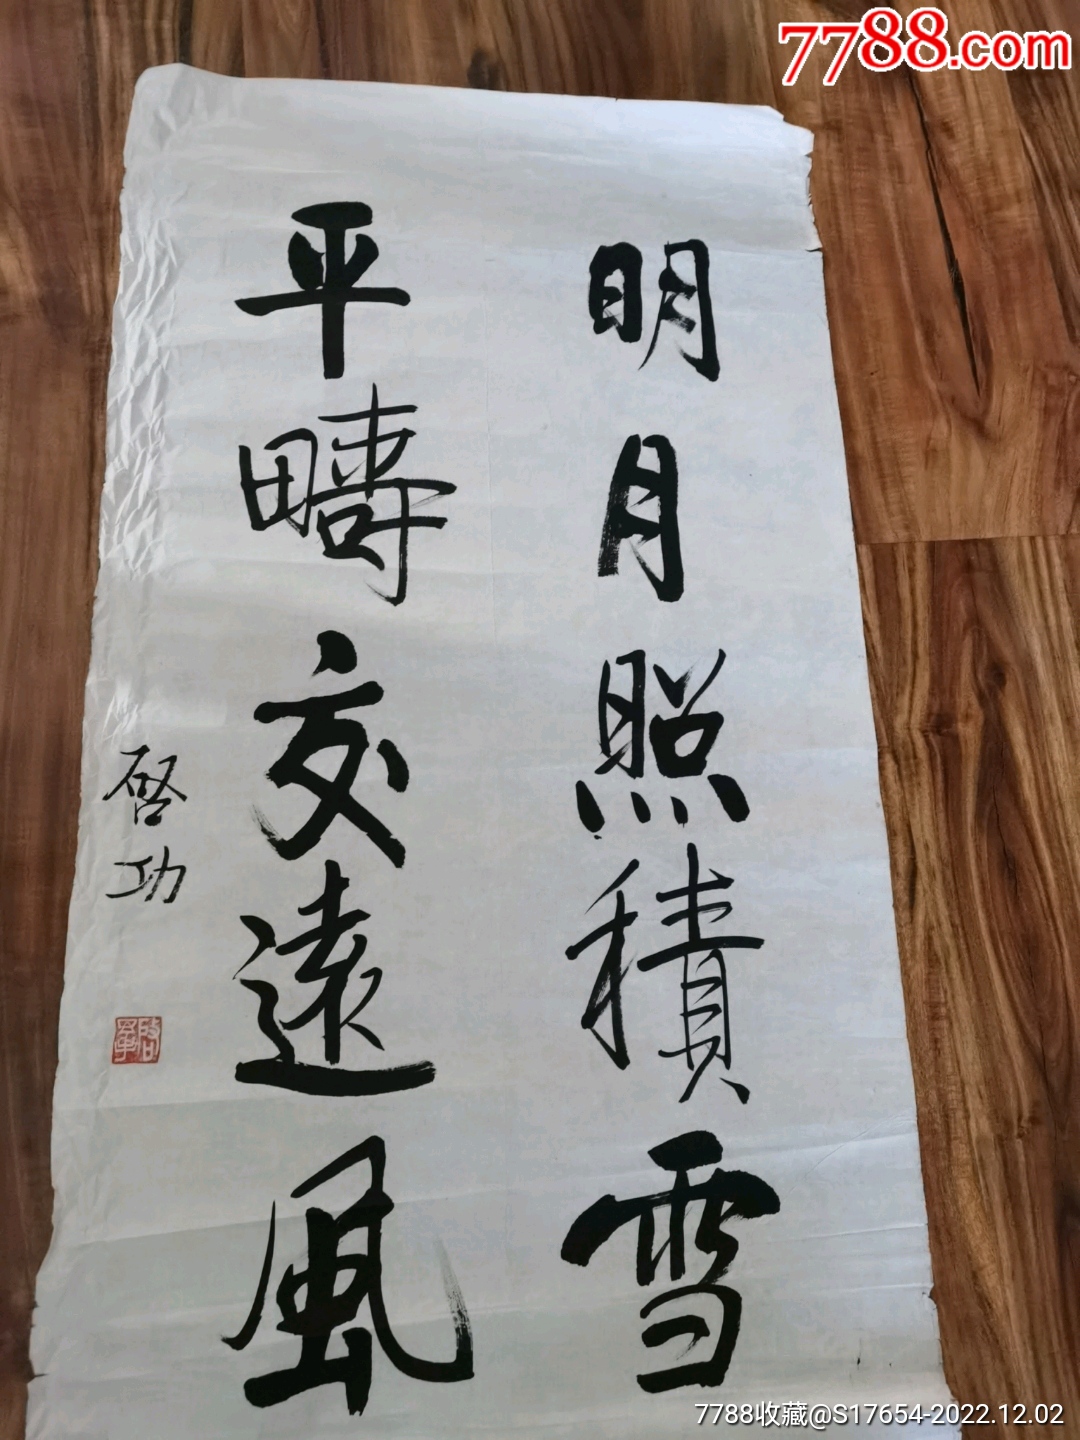 7788.com
明月照積雪
平疇交遠風
啓功
7788收藏@S17654-2022.12.02